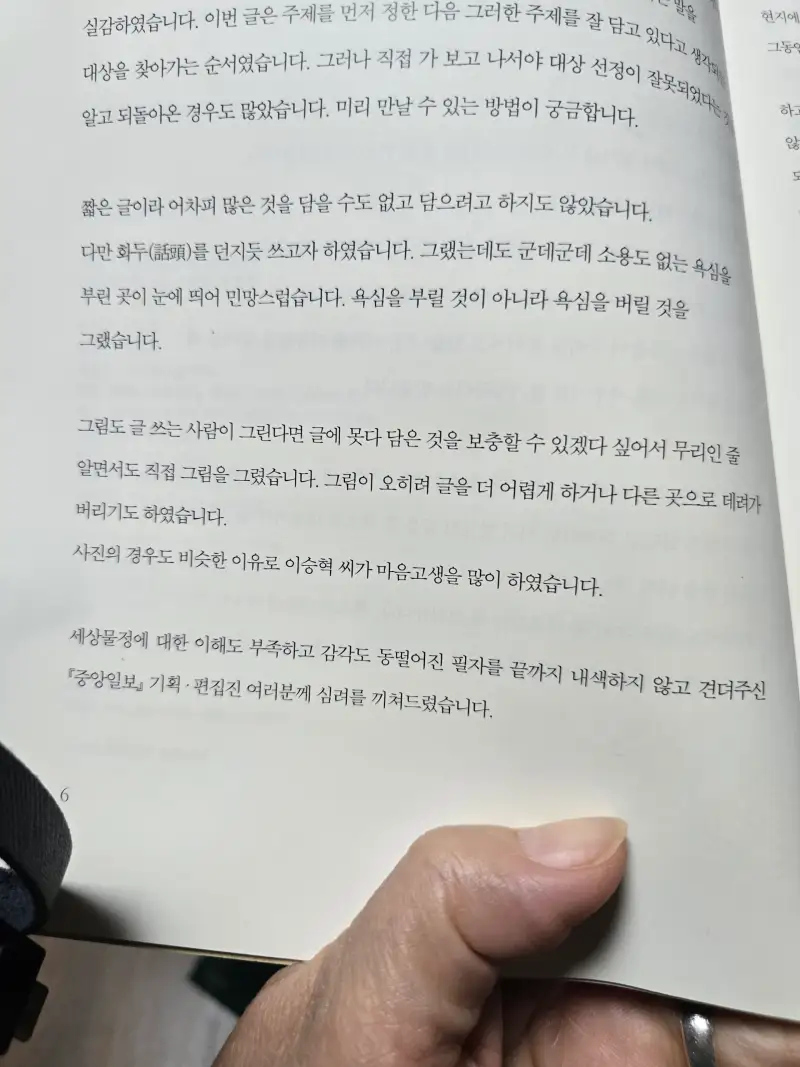 말을
실감하였습니다. 이번 글은 주제를 먼저 정한 다음 그러한 주제를 잘 담고 있다고
대상을 찾아가는 순서였습니다. 그러나 직접 가 보고 나서야 대상 선정이 잘못되었다는
알고 되돌아온 경우도 많았습니다. 미리 만날 수 있는 방법이 궁금합니다.
짧은 글이라 어차피 많은 것을 담을 수도 없고 담으려고 하지도 않았습니다.
다만 화두(話頭)를 던지듯 쓰고자 하였습니다. 그랬는데도 군데군데 소용도 없는 욕심을
부린 곳이 눈에 띄어 민망스럽습니다. 욕심을 부릴 것이 아니라 욕심을 버릴 것을
그랬습니다.
그림도 글 쓰는 사람이 그린다면 글에 못다 담은 것을 보충할 수 있겠다 싶어서 무리인 줄
알면서도 직접 그림을 그렸습니다. 그림이 오히려 글을 더 어렵게 하거나 다른 곳으로 데려가
버리기도 하였습니다.
사진의 경우도 비슷한 이유로 이승혁 씨가 마음고생을 많이 하였습니다.
세상물정에 대한 이해도 부족하고 감각도 동떨어진 필자를 끝까지 내색하지 않고 견뎌주신
『중앙일보』 기획·편집진 여러분께 심려를 끼쳐드렸습니다.
6
현지에
하고